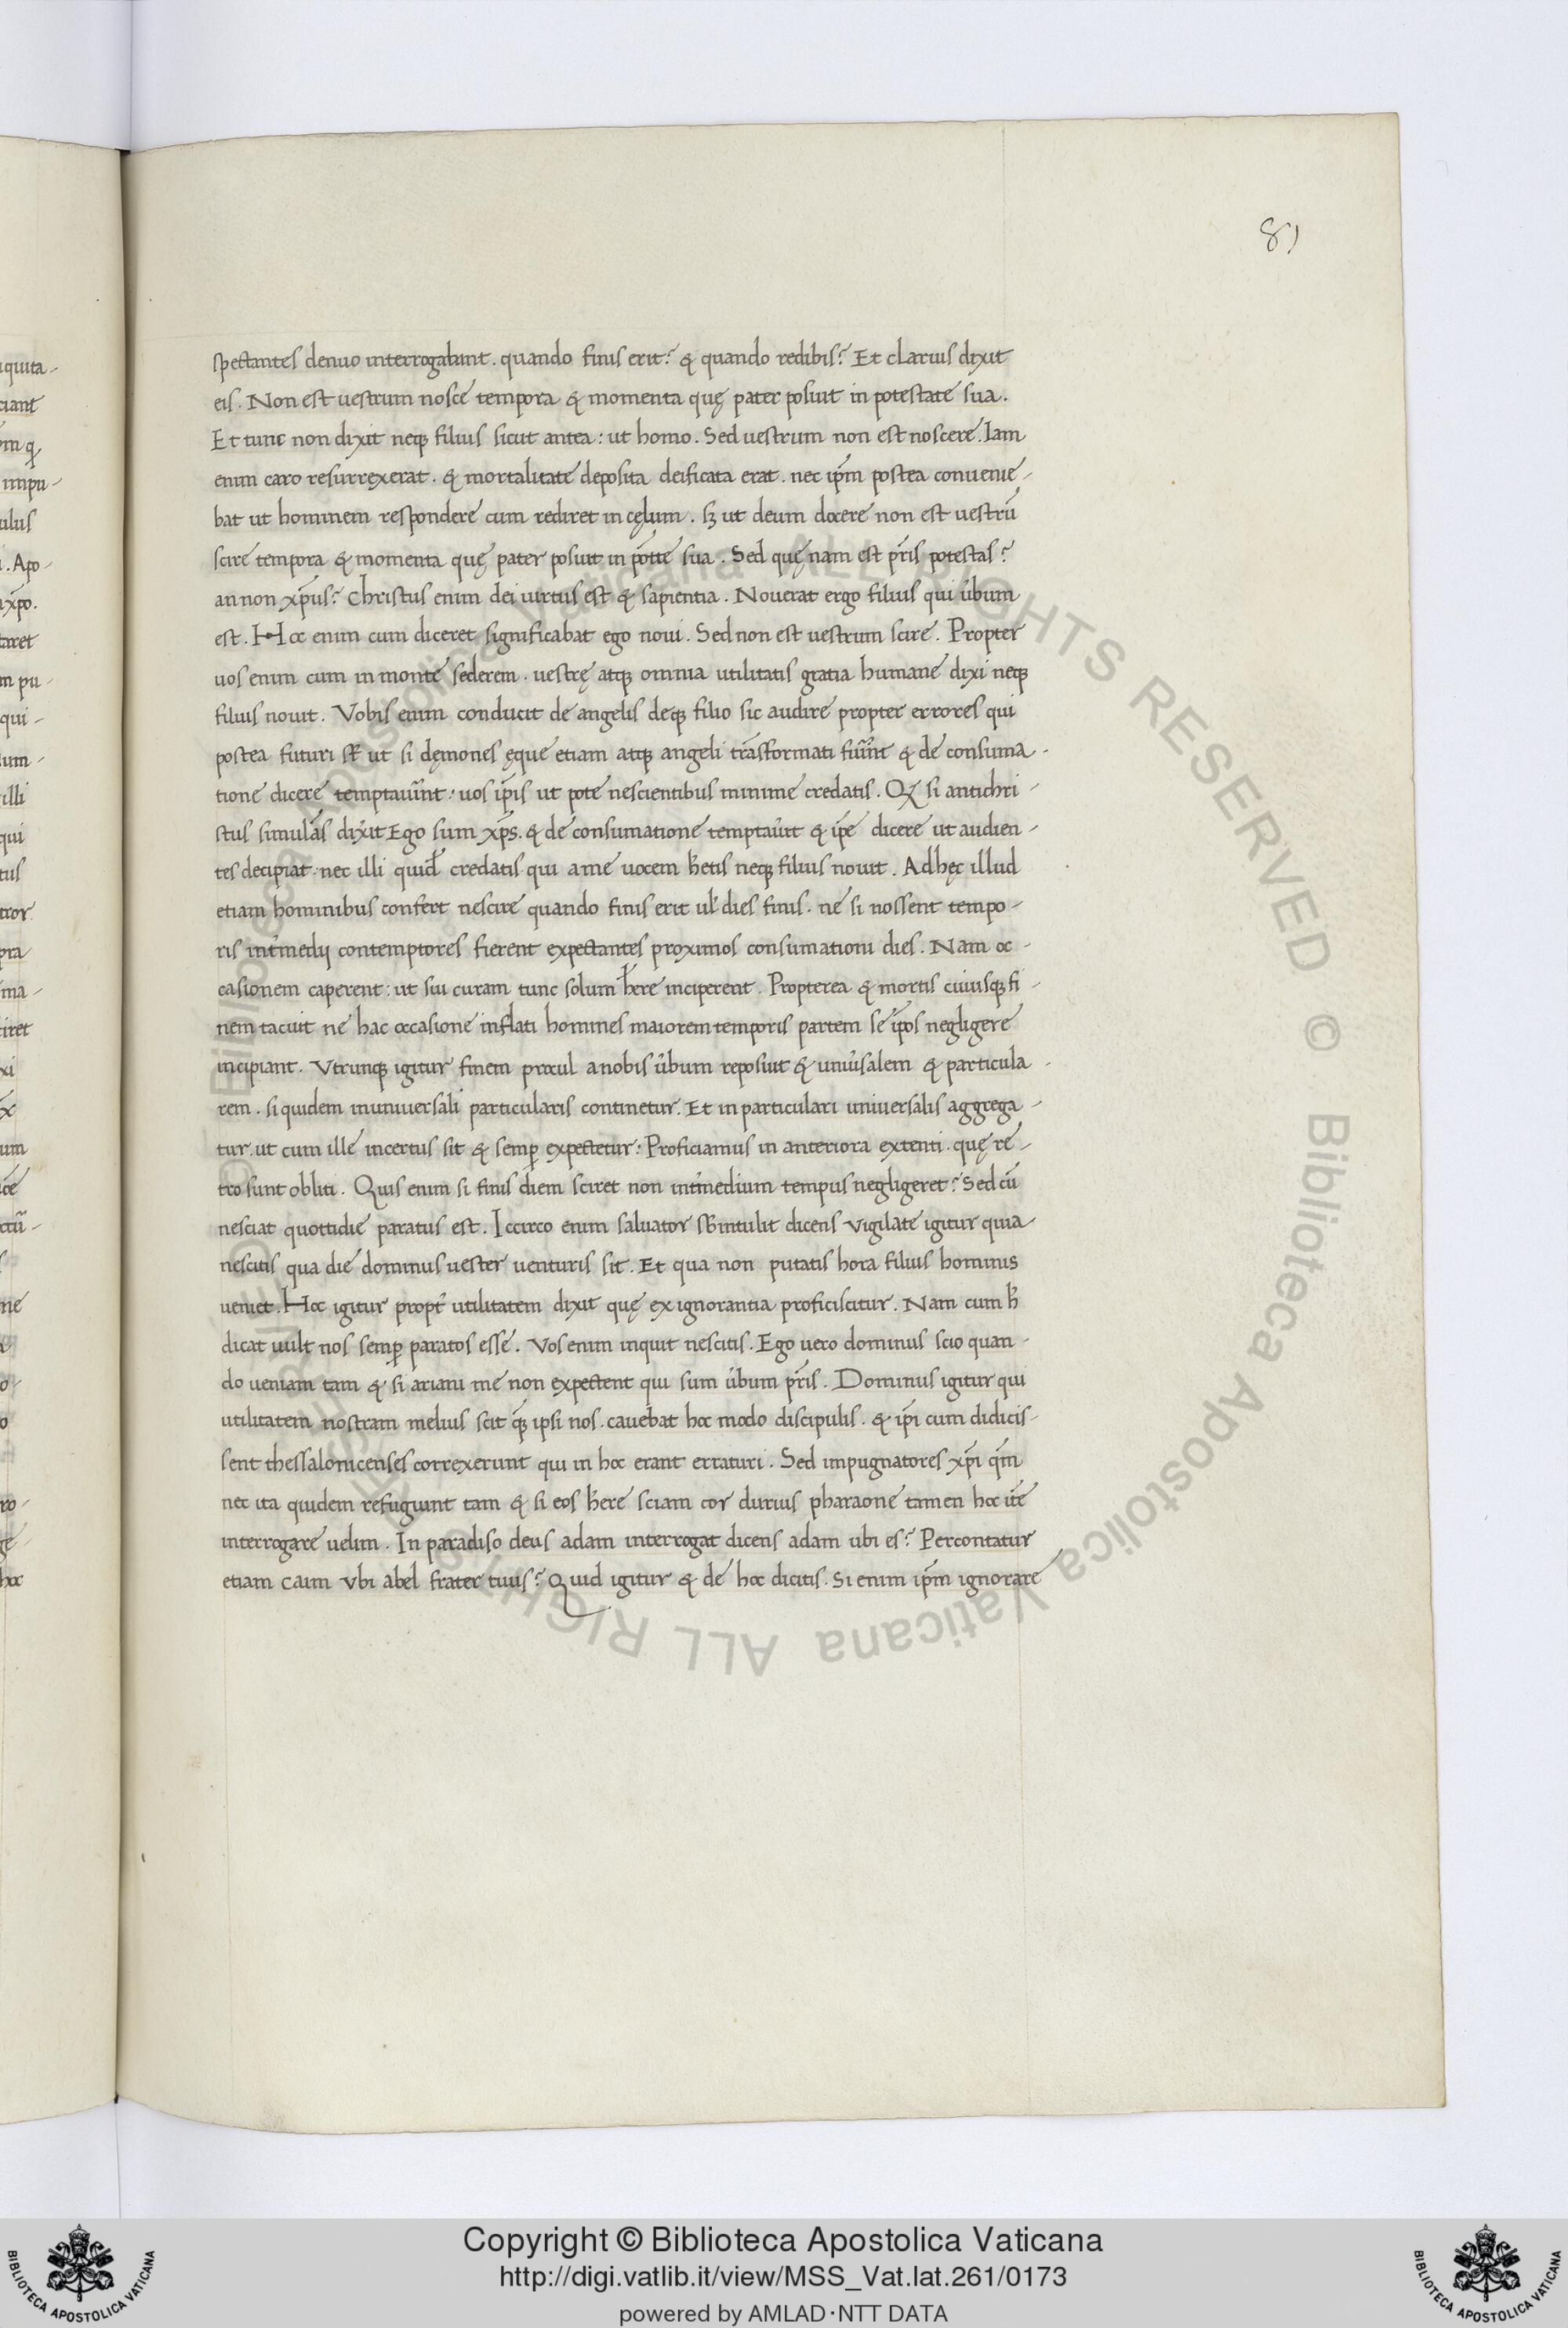 81
spectantes denuo interrogabunt. quando finis erit? & quando redibis? Et clarius dixit
eis. Non est uestrum nosce tempora & momenta quę pater posuit in potestate sua.
Et tunc non dixit neq; filius sicut antea: ut homo. Sed uestrum non est noscere. Iam
enim caro resurrexerat. & mortalitate deposita deificata erat. nec ip̄m postea conuenie-
bat ut hominem respondere cum rediret in cęlum. sꝫ ut deum docere non est uestrū
scire tempora & momenta quę pater posuit in p̄ottē sua. Sed quę nam est p̄ris potestas?
an non xp̄us? Christus enim dei uirtus est & sapientia. Nouerat ergo filius qui u̇bum
est. Hoc enim cum diceret significabat ego noui. Sed non est uestrum scire. Propter
uos enim cum in monte sederem. uestrę atq; omnia utilitatis gratia humane dixi neq;
filius nouit. Vobis enim conducit de angelis deq; filio sic audire propter errores qui
postea futuri st̄ ut si dęmones ęque etiam atq; angeli trāsformati fuīnt & de consuma-
tione dicere temptauīnt: uos ip̄is ut pote nescientibus minime credatis. Qđ si antichri-
stus simulās dix̓it Ego sum xp̄s. & de consumatione temptau̓it & ip̄e dicere ut audien-
tes decipiat. nec illi quiđ credatis qui a me uocem hētis neq; filius nouit. Ad hęc illud
etiam hominibus confert nescire quando finis erit ul̄ dies finis. ne si nossent tempo-
ris int̓medij contemptores fierent expectantes proximos consumationi dies. Nam oc-
casionem caperent: ut sui curam tunc solum hēre inciperent. Propterea & mortis cuiusq; fi-
nem tacuit ne hac occasione inflati homines maiorem temporis partem se ip̄os negligere
incipiant. Vtrunq; igitur finem procul a nobis u̇bum reposuit & uniu̓salem & particula-
rem. si quidem in uniuersali particularis continetur. Et in particulari uniuersalis aggrega-
tur. ut cum ille incertus sit & semp̱ expectetur: Proficiamus in anteriora extenti. quę re-
tro sunt obliti. Quis enim si finis diem sciret non int̓medium tempus negligeret? Sed cū
nesciat quottidie paratus est. Iccirco enim saluator sƀintulit dicens vigilate igitur quia
nescitis qua die dominus uester uenturis sit. Et qua non putatis hora filius hominis
ueniet. Hoc igitur propt̓ utilitatem dixit quę ex ignorantia proficiscitur. Nam cum h̄
dicat uult nos semp̱ paratos esse. Vos enim inquit nescitis. Ego uero dominus scio quan-
do ueniam tam & si ariani me non expectent qui sum u̇bum p̄ris. Dominus igitur qui
utilitatem nostram melius scit q̄ꝫ ipsi nos. cauebat hoc modo discipulis. & ip̄i cum didicis-
sent thessalonicenses correxerunt qui in hoc erant erraturi. Sed impugnatores xp̄i qm̄
nec ita quidem refugiunt tam & si eos hēre sciam cor durius pharaone tamen hoc itē
interrogare uelim. In paradiso deus adam interrogat dicens adam ubi es? Percontatur
etiam Caim vbi abel frater tuus? Quid igitur & de hoc dicitis. Si enim ip̄m ignorare
Copyright © Biblioteca Apostolica Vaticana
http://digi.vatlib.it/view/MSS_Vat.lat.261/0173
powered by AMLAD·NTT DATA